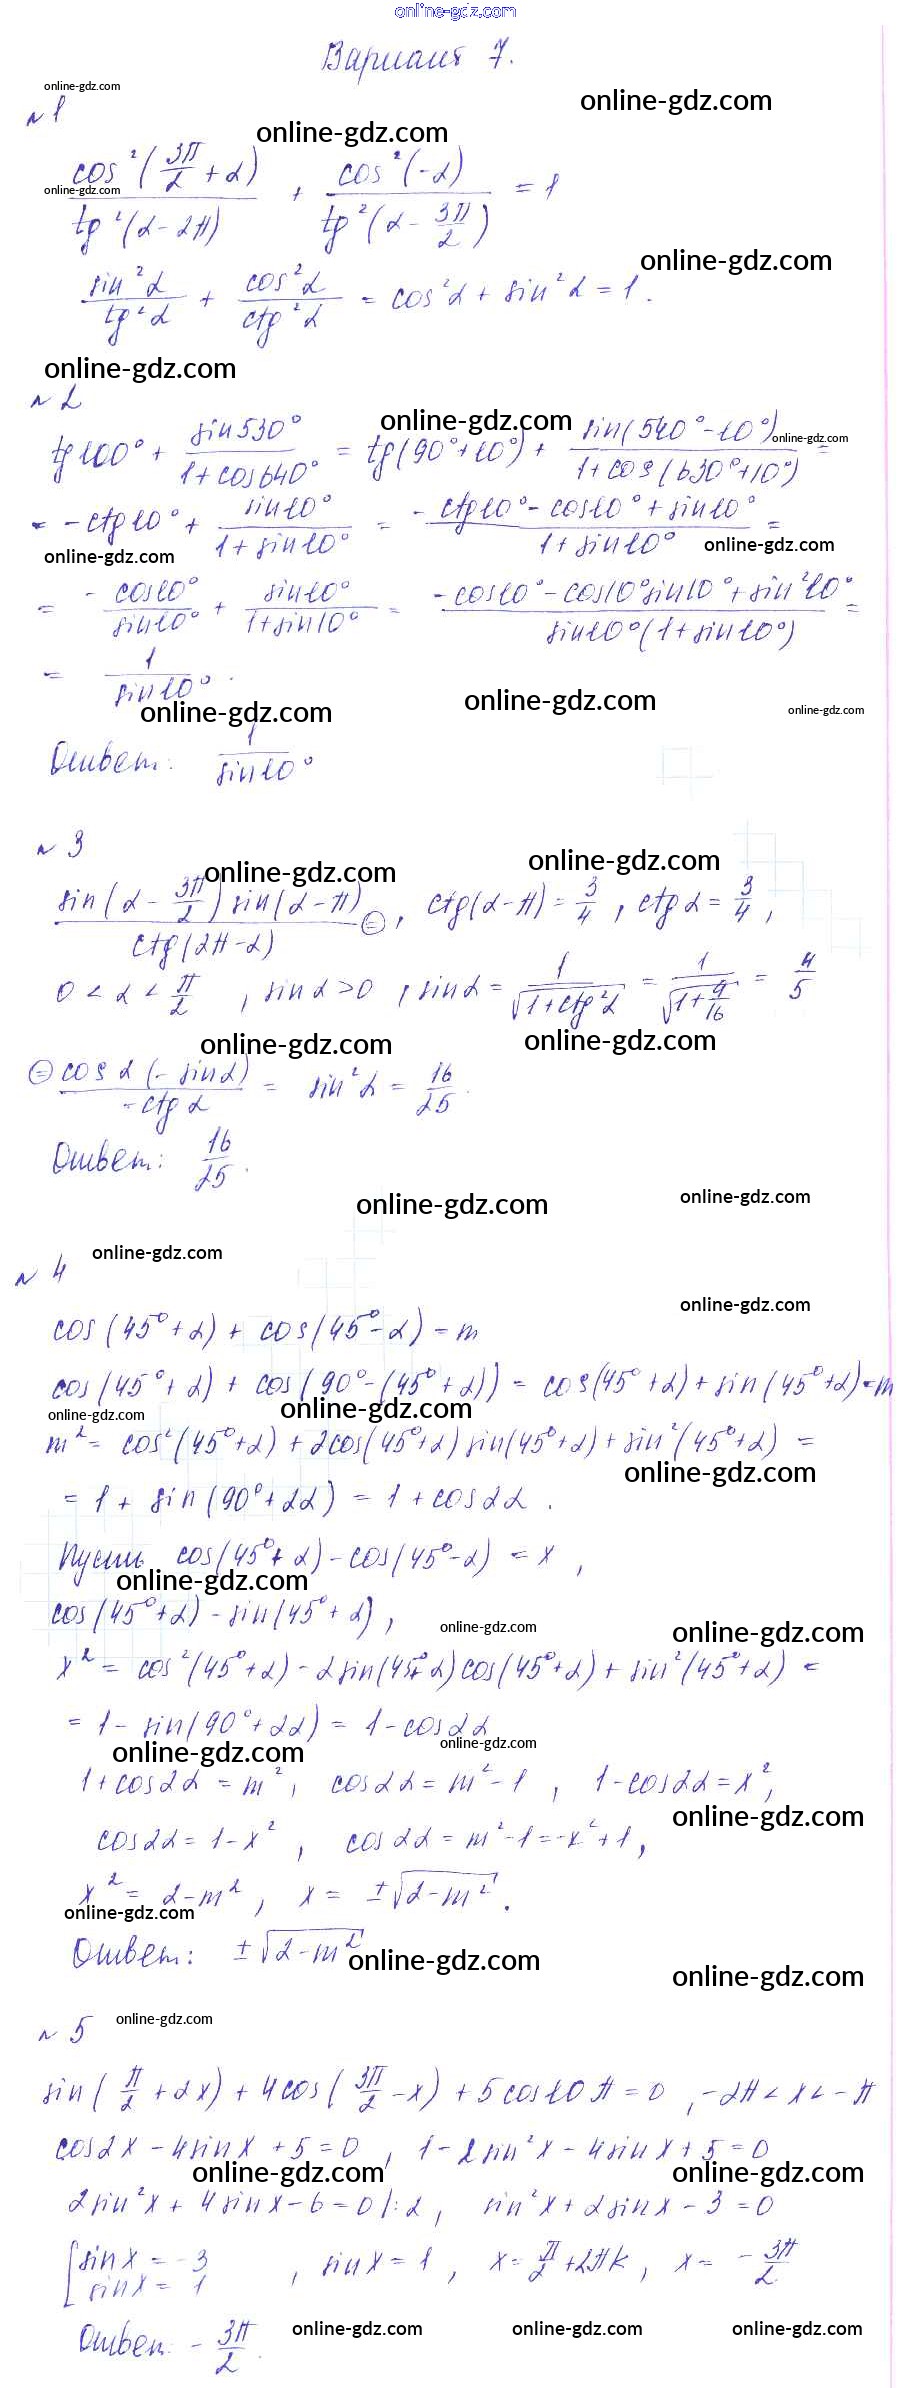 online-gdz.com
Вариант 7.
online-gdz.com
online-gdz.com
№1
online-gdz.com
cos²(3π/2 + α) / tg²(α - 2π) + cos²(-α) / tg²(α - 3π/2) = 1
online-gdz.com
online-gdz.com
sin²α / tg²α + cos²α / ctg²α = cos²α + sin²α = 1.
online-gdz.com
№2
online-gdz.com
tg100° + sin530° / 1 + cos640° = tg(90° + 10°) + sin(540° - 10°) / 1 + cos(630° + 10°) =
online-gdz.com
= -ctg10° + sin10° / 1 + sin10° = -ctg10° - cos10° + sin10° / 1 + sin10° =
online-gdz.com
online-gdz.com
= - cos10° / sin10° + sin10° / 1 + sin10° = -cos10° - cos10°sin10° + sin²10° / sin10°(1 + sin10°) =
= 1 / sin10°.
online-gdz.com
online-gdz.com
online-gdz.com
Ответ: 1 / sin10°
№3
online-gdz.com
online-gdz.com
sin(α - 3π/2) sin(α - π) / ctg(2π - α) =, ctg(α - π) = 3/4, ctgα = 3/4,
0 < α < π/2, sinα > 0, sinα = 1 / √1 + ctg²α = 1 / √1 + 9/16 = 4/5
online-gdz.com
online-gdz.com
= cosα (- sinα) / -ctgα = sin²α = 16/25.
Ответ: 16/25.
online-gdz.com
online-gdz.com
№4
online-gdz.com
online-gdz.com
cos(45° + α) + cos(45° - α) = m
cos(45° + α) + cos(90° - (45° + α)) = cos(45° + α) + sin(45° + α) = m
online-gdz.com
online-gdz.com
m² = cos²(45° + α) + 2cos(45° + α) sin(45° + α) + sin²(45° + α) =
online-gdz.com
= 1 + sin(90° + 2α) = 1 + cos2α.
Пусть cos(45° + α) - cos(45° - α) = x,
online-gdz.com
cos(45° + α) - sin(45° + α),
online-gdz.com
online-gdz.com
x² = cos²(45° + α) - 2sin(45° + α)cos(45° + α) + sin²(45° + α) =
= 1 - sin(90° + 2α) = 1 - cos2α
online-gdz.com
online-gdz.com
1 + cos2α = m², cos2α = m² - 1, 1 - cos2α = x²,
online-gdz.com
cos2α = 1 - x², cos2α = m² - 1 = -x² + 1,
x² = 2 - m², x = ±√2 - m².
online-gdz.com
Ответ: ±√2 - m²
online-gdz.com
online-gdz.com
№5
online-gdz.com
sin(π/2 + 2x) + 4cos(3π/2 - x) + 5cos10π = 0, -2π < x < -π
cos2x - 4sinx + 5 = 0, 1 - 2sin²x - 4sinx + 5 = 0
online-gdz.com
online-gdz.com
2sin²x + 4sinx - 6 = 0 |:2, sin²x + 2sinx - 3 = 0
[sinx = -3
sinx = 1, sinx = 1, x = π/2 + 2πk, x = - 3π/2
Ответ: - 3π/2.
online-gdz.com
online-gdz.com
online-gdz.com